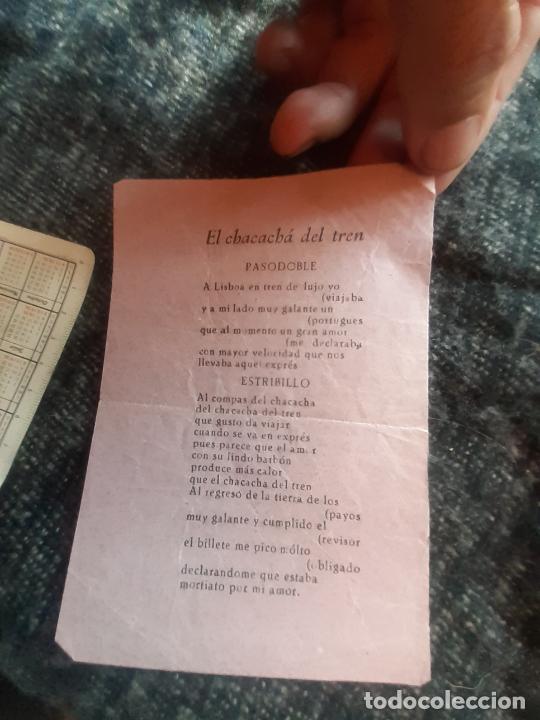 El chacachá del tren
PASODOBLE
A Lisboa en tren de lujo yo
(viajaba
y a mi lado muy galante un
(portugues
que al momento un gran amor
(me declaraba
con mayor velocidad que nos
llevaba aquel exprés
ESTRIBILLO
Al compas del chacacha
del chacacha del tren
que gusto da viajar
cuando se va en exprés
pues parece que el amor
con su lindo barbón
produce más calor
que el chacacha del tren
Al regreso de la tierra de los
(payos
muy galante y cumplido el
(revisor
el billete me pico molto
(obligado
declarandome que estaba
mortiato por mi amor.
todocoleccion.net